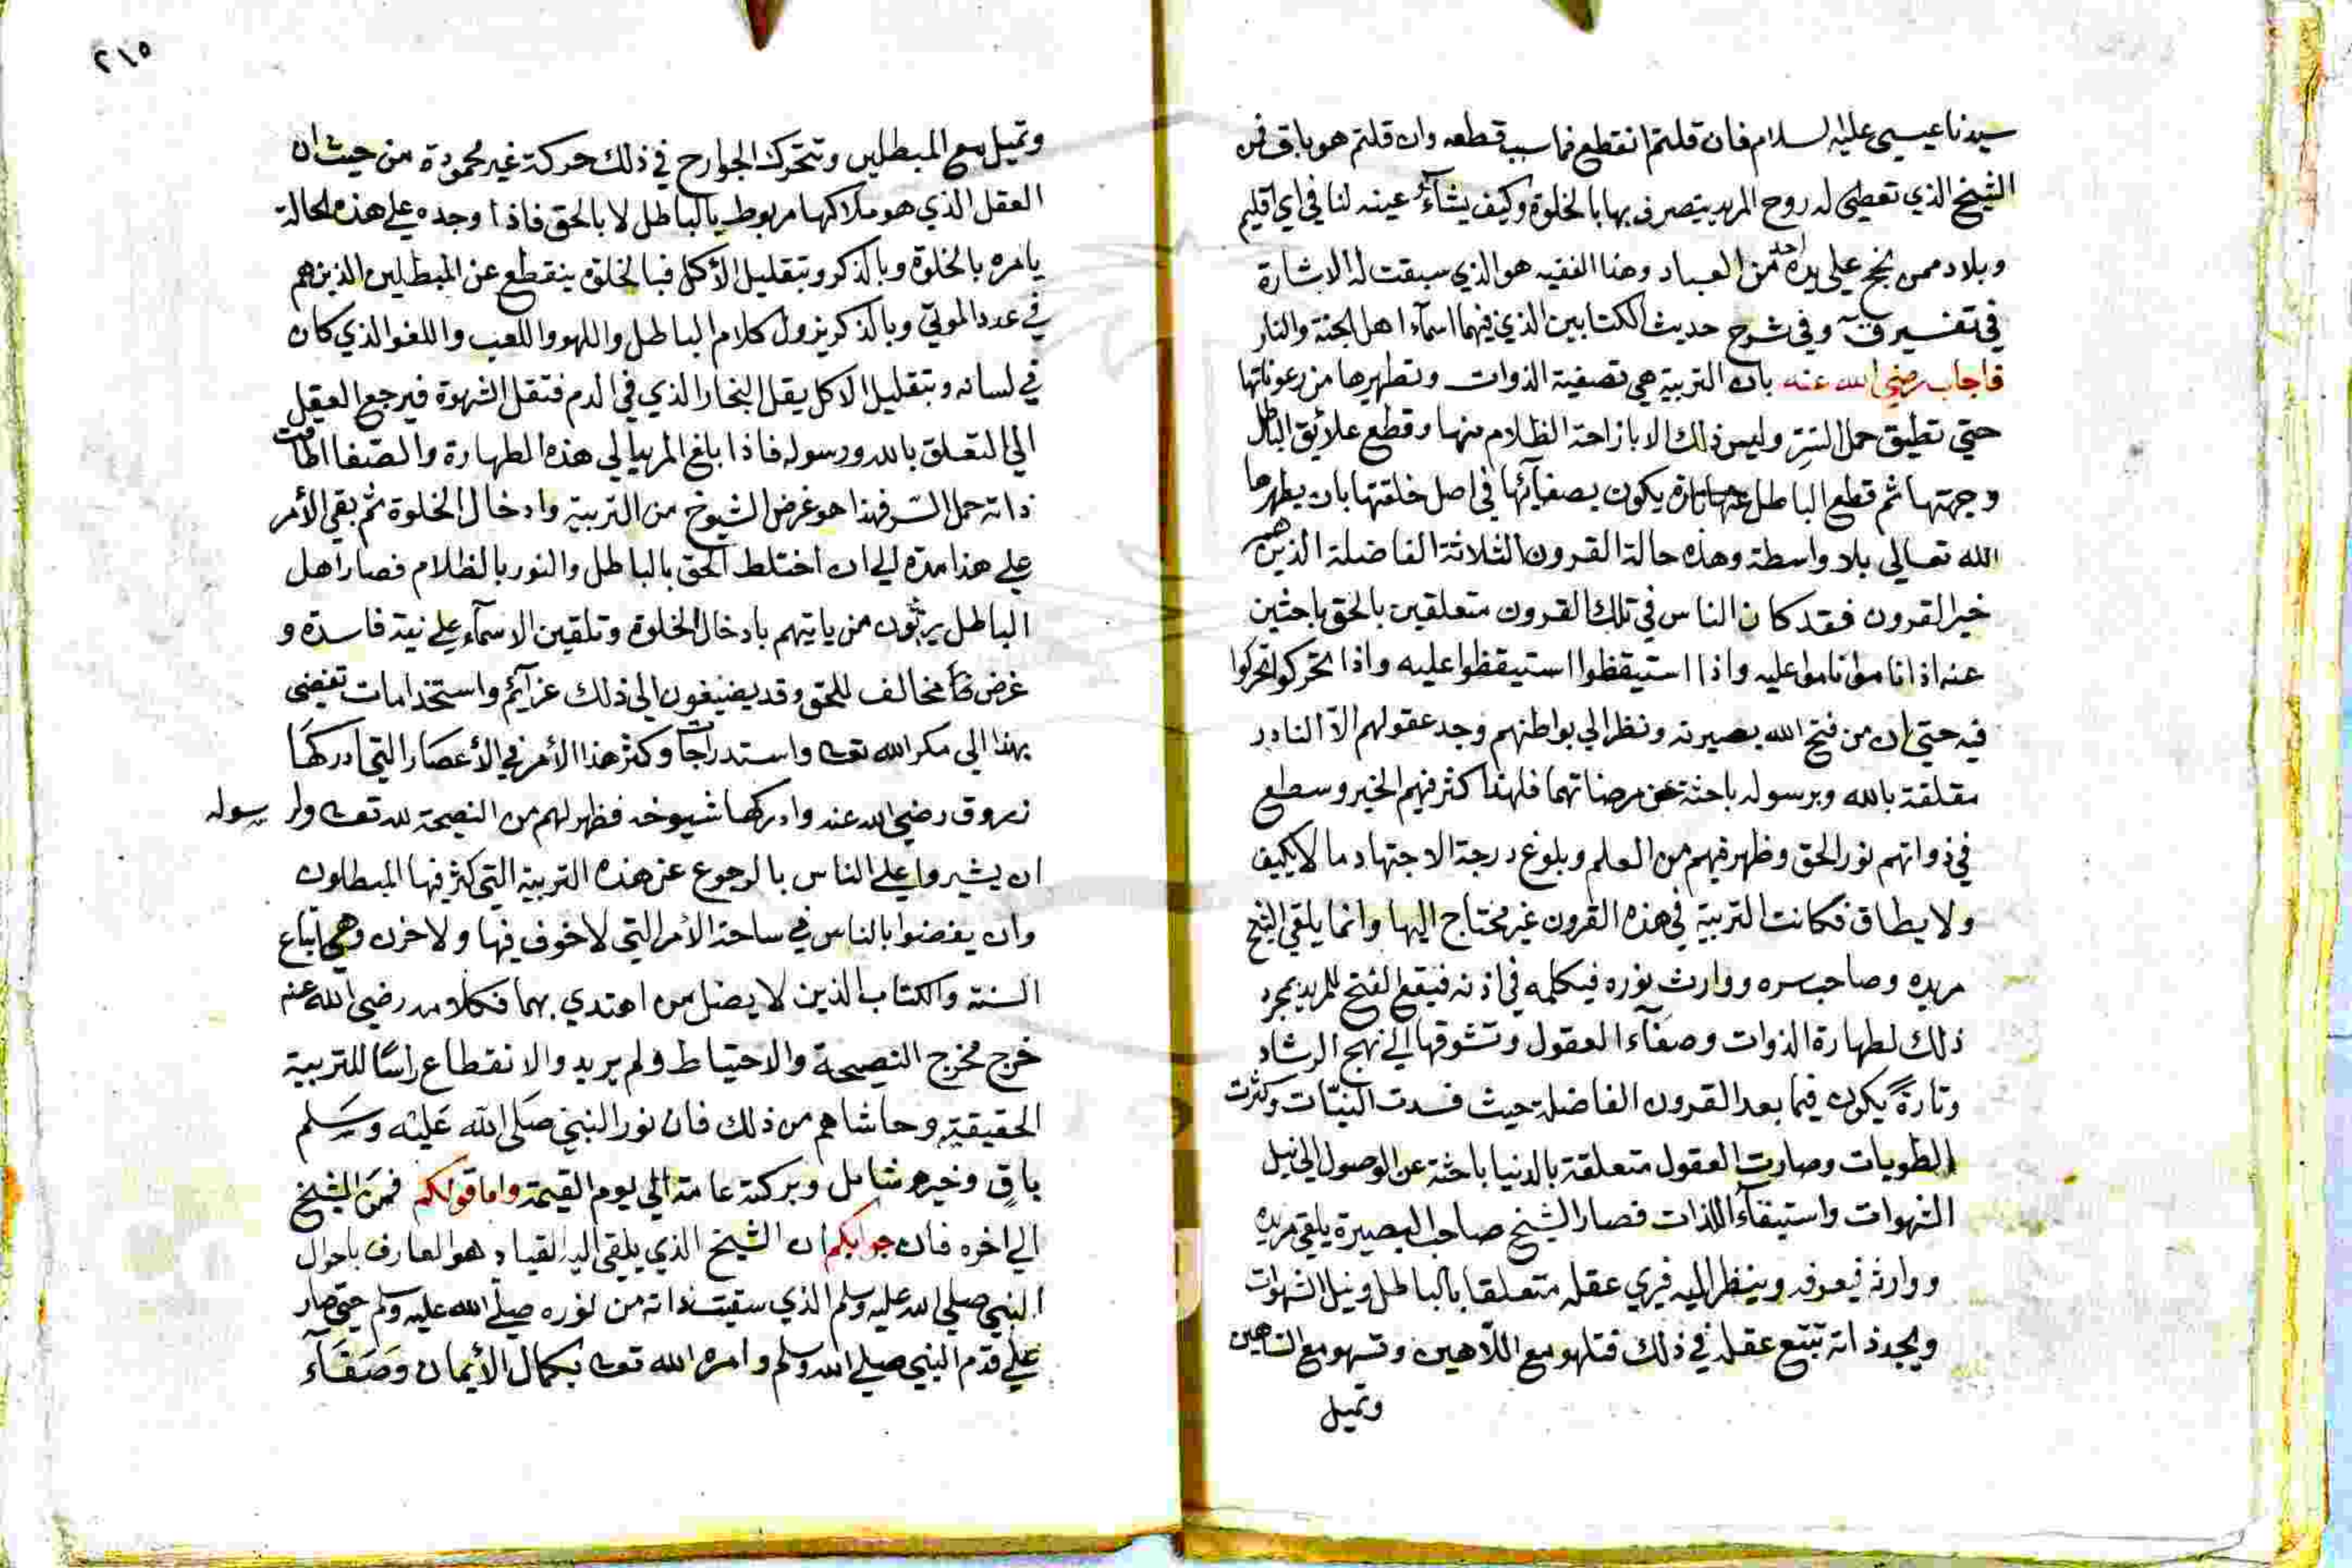 سيدنا عيسى عليه السلام فان قلتم انقطع فما سبب قطعه وان قلتم هو باق فمن
الشيخ الذي تعطى له روح المريد يتصرف بها بالخلوة وكيف يشآء عينه لنا في اي اقليم
وبلاد ممن نجح على يده احد من العباد وهذا الفقيه هو الذي سبقت له الاشارة
في تفسير ق وفي شرح حديث الكتابين الذي فيهما اسمآء اهل الجنة والنار
فاجاب رضي الله عنه بان التربية هي تصفية الذوات وتطهيرها من رعوناتها
حتى تطيق حمل السر وليس ذلك الا بازاحة الظلام منها وقطع علائق الباطل
وجهتها ثم قطع الباطل عنها تارة يكون بصفآئها في اصل خلقتها بان يطهرها
الله تعالى بلا واسطة وهذه حالة القرون الثلاثة الفاضلة الذين هم
خير القرون فقد كان الناس في تلك القرون متعلقين بالحق باحثين
عنه اذا ناموا ناموا عليه واذا استيقظوا استيقظوا عليه واذا تحركوا تحركوا
فيه حتى ان من فتح الله بصيرته ونظر الى بواطنهم وجد عقولهم الا النادر
مقلقة بالله وبرسوله باحثة عن مرضاتهما فلهذا كثر فيهم الخير وسطع
في ذواتهم نور الحق وظهر فيهم من العلم وبلوغ درجة الاجتهاد ما لا يكيف
ولا يطاق فكانت التربية في هذه القرون غير محتاج اليها وانما يلقي الشيخ
مريده وصاحب سره ووارث نوره فيكلمه في اذنه فيقع الفتح للمريد بمجرد
ذلك لطهارة الذوات وصفآء العقول وتشوقها الى نهج الرشاد
وتارةً يكون فيما بعد القرون الفاضلة حيث فسدت النيّات وكثرت
الطويات وصارت العقول متعلقة بالدنيا باحثة عن الوصول الى نيل
الشهوات واستيفآء اللذات فصار الشيخ صاحب البصيرة يلقي مريده
ووارثه فيعرفه وينظر اليه فيرى عقله متعلقا بالباطل ونيل الشهوات
ويجد ذاته تتبع عقله في ذلك فتلهو مع اللاهين وتسهو مع الساهين
وتميل
٢١٥
وتميل مع المبطلين وتتحرك الجوارح في ذلك حركة غير محمودة من حيث ان
العقل الذي هو ملاكها مربوط بالباطل لا بالحق فاذا وجده على هذه الحالة
يامره بالخلوة وبالذكر وبتقليل الأكل فبالخلوة ينقطع عن المبطلين الذين هم
في عدد الموتى وبالذكر يزول كلام الباطل واللهو واللعب واللغو الذي كان
في لسانه وبتقليل الاكل يقل البخار الذي في الدم فتقل الشهوة فيرجع العقل
الى التعلق بالله ورسوله فاذا بلغ المريد الى هذه الطهارة والصفا اطاقت
ذاته حمل السر فهذا هو غرض الشيوخ من التربية وادخال الخلوة ثم بقي الأمر
على هذا مدة الى ان اختلط الحق بالباطل والنور بالظلام فصار اهل
الباطل يربّون من ياتيهم بادخال الخلوة وتلقين الاسمآء على نية فاسدة و
غرض مخالف للحق وقد يضيفون الى ذلك عزآئم واستخدامات تفضي
بهذا الى مكر الله تعه واستدراجات وكثر هذا الأمر في الأعصار التي ادركها
زروق رضي الله عنه وادركها شيوخه فظهر لهم من النصيحة لله تعه ولرسوله
ان يشيروا على الناس بالرجوع عن هذه التربية التي كثر فيها المبطلون
وان يفضوا بالناس في ساحة الأمر التي لا خوف فيها ولا حزن وهي اتباع
السنة والكتاب الذين لا يضل من اهتدى بهما فكلامه رضي الله عنه
خرج مخرج النصيحة والاحتياط ولم يريد والانقطاع راسًا للتربية
الحقيقية وحاشاهم من ذلك فان نور النبي صلى الله عليه وسلم
باقٍ وخيره شامل وبركته عامة الى يوم القيمة واما قولكم فمن الشيخ
الى اخره فان جوابكم ان الشيخ الذي يلقى اليه القياد هو العارف باحوال
النبي صلى الله عليه وسلم الذي سقيت ذاته من نوره صلى الله عليه وسلم حتى صار
على قدم النبي صلى الله وسلم وامره الله تعه بكمال الأيمان وصفآء